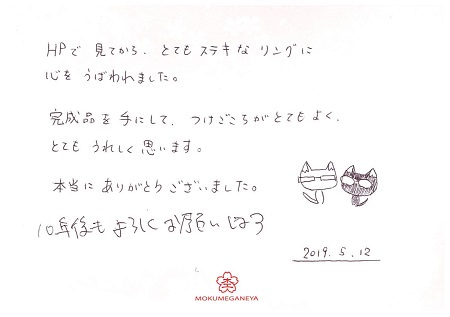 HPで見てから、とてもステキなリングに
心をうばわれました。
完成品を手にして、つけごこちがとてもよく、
とてもうれしく思います。
本当にありがとうございました。
10年後もよろしくお願いします
2019. 5. 12
MOKUMEGANEYA